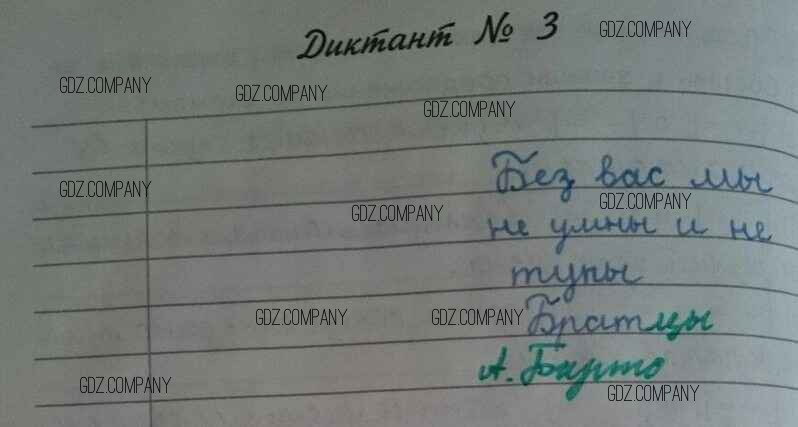 Диктант № 3
GDZ.COMPANY
GDZ.COMPANY
GDZ.COMPANY
GDZ.COMPANY
Без вас мы
GDZ.COMPANY
GDZ.COMPANY
GDZ.COMPANY
не умны и не
тупы
GDZ.COMPANY
GDZ.COMPANY
Братцы
А. Барто
GDZ.COMPANY
GDZ.COMPANY